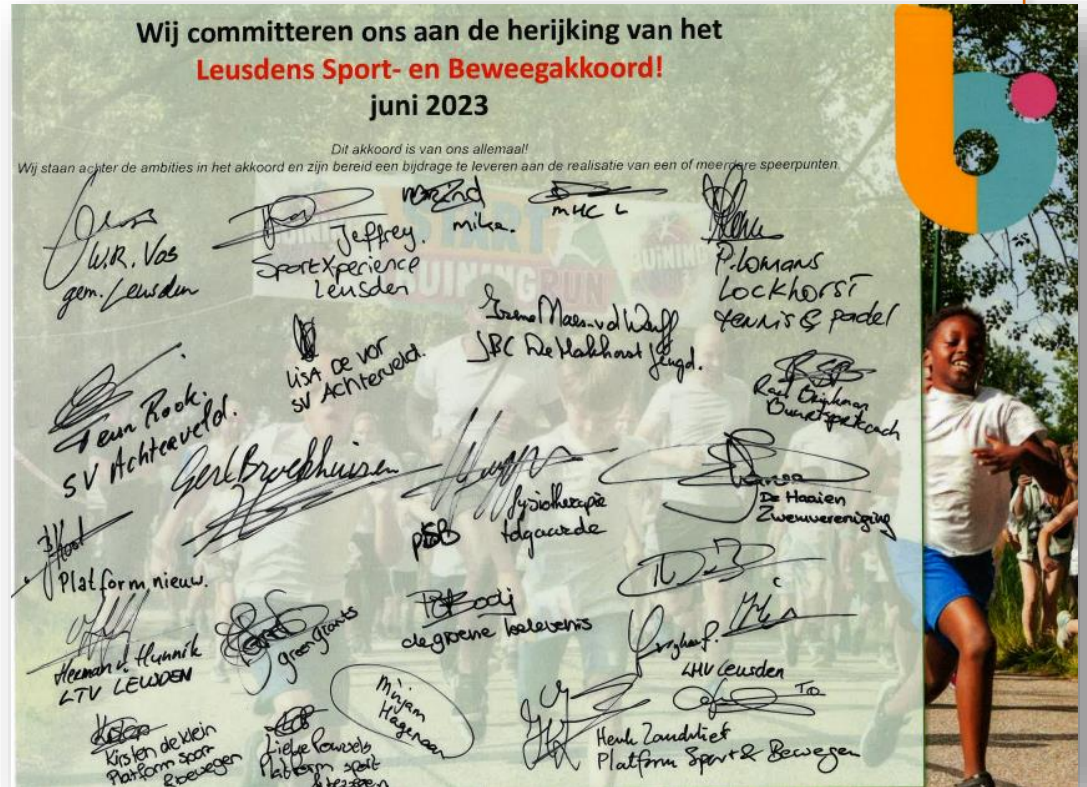 Wij committeren ons aan de herijking van het
Leusdens Sport- en Beweegakkoord!
juni 2023
Dit akkoord is van ons allemaal!
Wij staan achter de ambities in het akkoord en zijn bereid een bijdrage te leveren aan de realisatie van een of meerdere speerpunten.
START
RUN
W.R. Vos
gem. Leusden
Jeffrey.
SportXperience
Leusden
mike.
MHC L
P. Lomans
Lockhorst
tennis & padel
Lisa de Vor
SV Achterveld.
Irene Maes-vd Werff
JBC De Hakhorst Jeugd.
Buurtsportcoach
Teun Rook.
SV Achterveld.
Gert Broekhuizen
fysiotherapie
De Haaien
Zwemvereniging
Platform nieuw.
Herman v Hunnik
LTV LEUSDEN
green giants
de groene belevenis
LHV Leusden
Mirjam
Hagenaar
Kirsten de Klein
Platform sport
& bewegen
Lieke Pouwels
Platform sport
& bewegen
Henk Zandvliet
Platform Sport & Bewegen